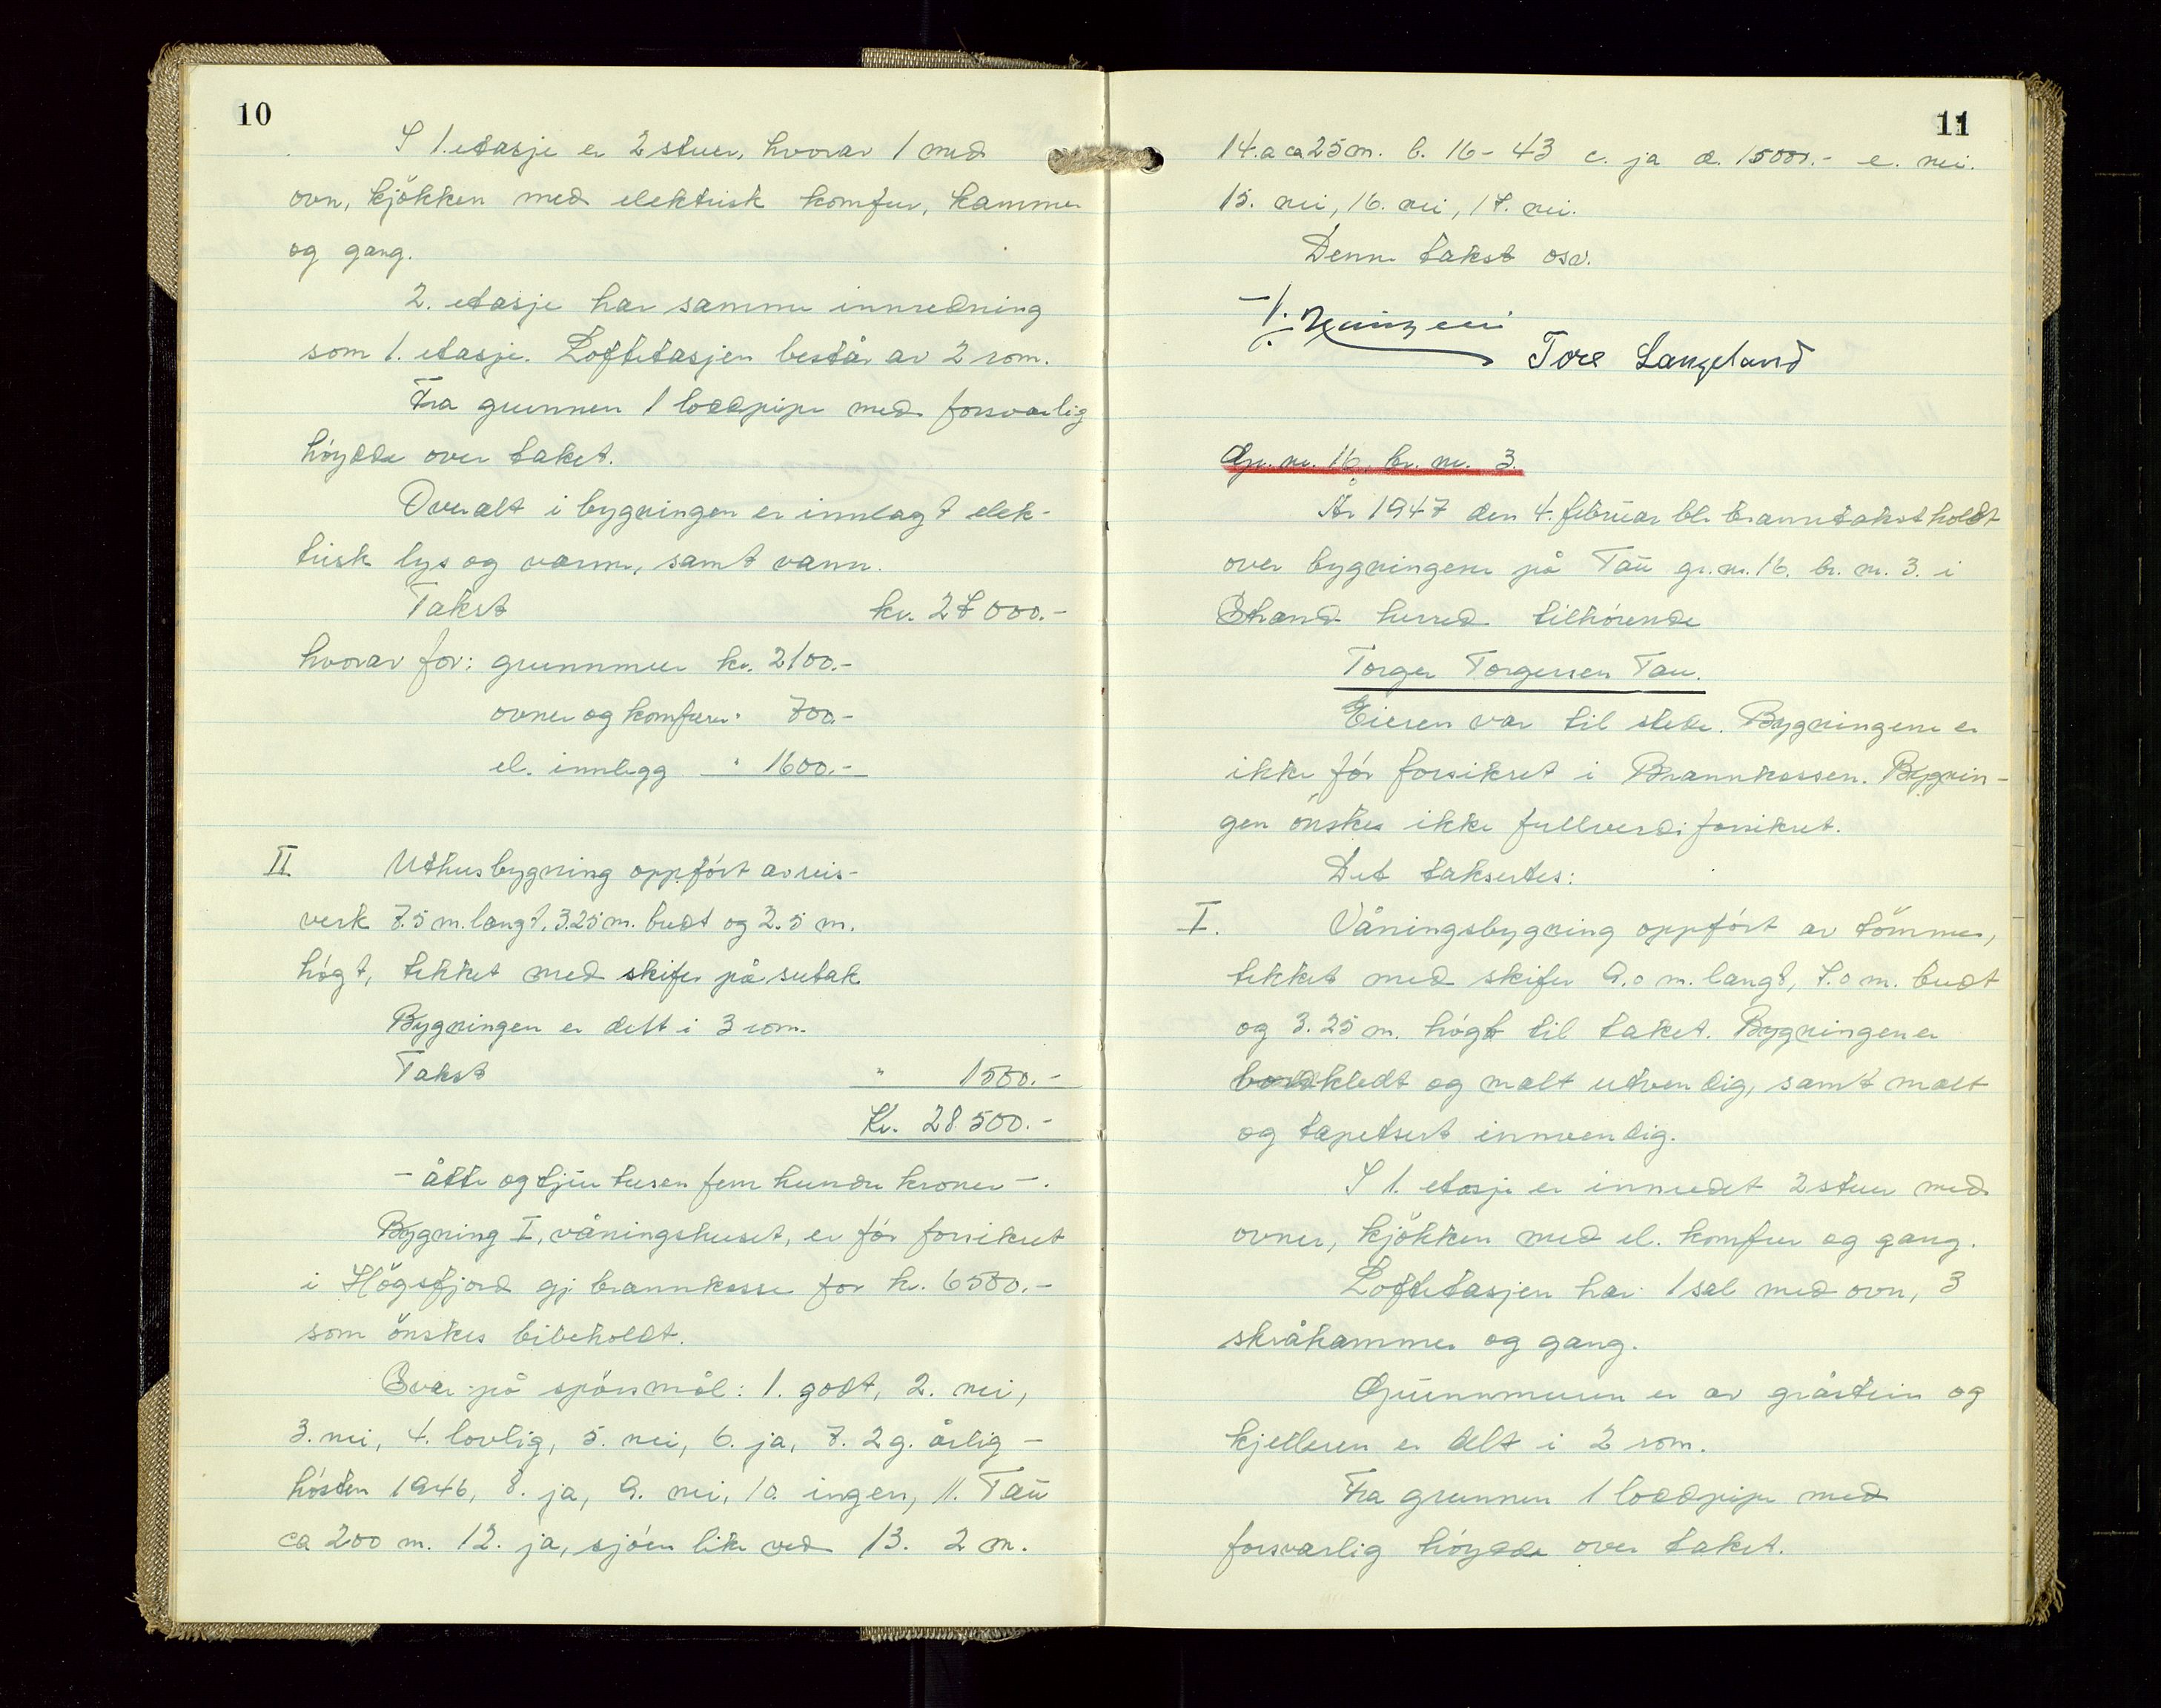 10
I 1. etasje er 2 stuer, hvorav 1 med
ovn, kjökken med elektrisk komfur, kammer
og gang.
2. etasje har samme innredning
som 1. etasje. Loftetasjen består av 2 rom.
Fra grunnen 1 loddpipe med forsvarlig
höydde over taket.
Overalt i bygningen er innlagt elek-
trisk lys og varme, samt vann.
Takst kr. 27 000.-
hvorav for: grunnmur kr. 2100.-
ovner og komfurer " 700.-
el. innlegg " 1600.-
II Uthusbygning oppfört av reis-
verk 7.5 m. langt, 3.25 m. bredt og 2.5 m.
högt, tekket med skifer på sutak
Bygningen er delt i 3 rom.
Takst " 1500.-
Kr. 28 500.-
- åtte og tjue tusen fem hundre kroner -.
Bygning I, våningshuset, er för forsikret
i Högsfjord gj. brannkasse for kr. 6500.-
som önskes bibeholdt.
Svar på spörsmål: 1. godt, 2. nei,
3. nei, 4. lovlig, 5. nei, 6. ja, 7. 2 g. årlig -
hösten 1946, 8. ja, 9. nei, 10. ingen, 11. Tau
ca 200 m. 12. ja, sjöen like ved 13. 2 m.
11
14. a ca 25 m. b. 16 - 43 c. ja d. 15000.- e. nei.
15. nei, 16. nei, 17. nei.
Denne takst osv.
Tore Langeland
Gr. nr. 16, br. nr. 3.
År 1947 den 4. februar ble branntakst holdt
over bygningene på Tau gr. nr. 16. br. nr. 3. i
Strand herred tilhörende
Torger Torgersen Tau.
Eieren var til stede. Bygningene er
ikke för forsikret i Brannkassen. Bygnin-
gen önskes ikke fullverdiforsikret.
Det taksertes:
I. Våningsbygning oppfört av tömmer,
tekket med skifer 9.0 m. langt, 7.0 m. bredt
og 3.25 m. högt til taket. Bygningen er
bordkledt og malt utvendig, samt malt
og tapetsert innvendig.
I 1. etasje er innredet 2 stuer med
ovner, kjökken med el. komfur og gang.
Loftetasjen har 1 sal med ovn, 3
skråkammer og gang.
Grunnmuren er av gråstein og
kjelleren er delt i 2 rom.
Fra grunnen 1 loddpipe med
forsvarlig höydde over taket.